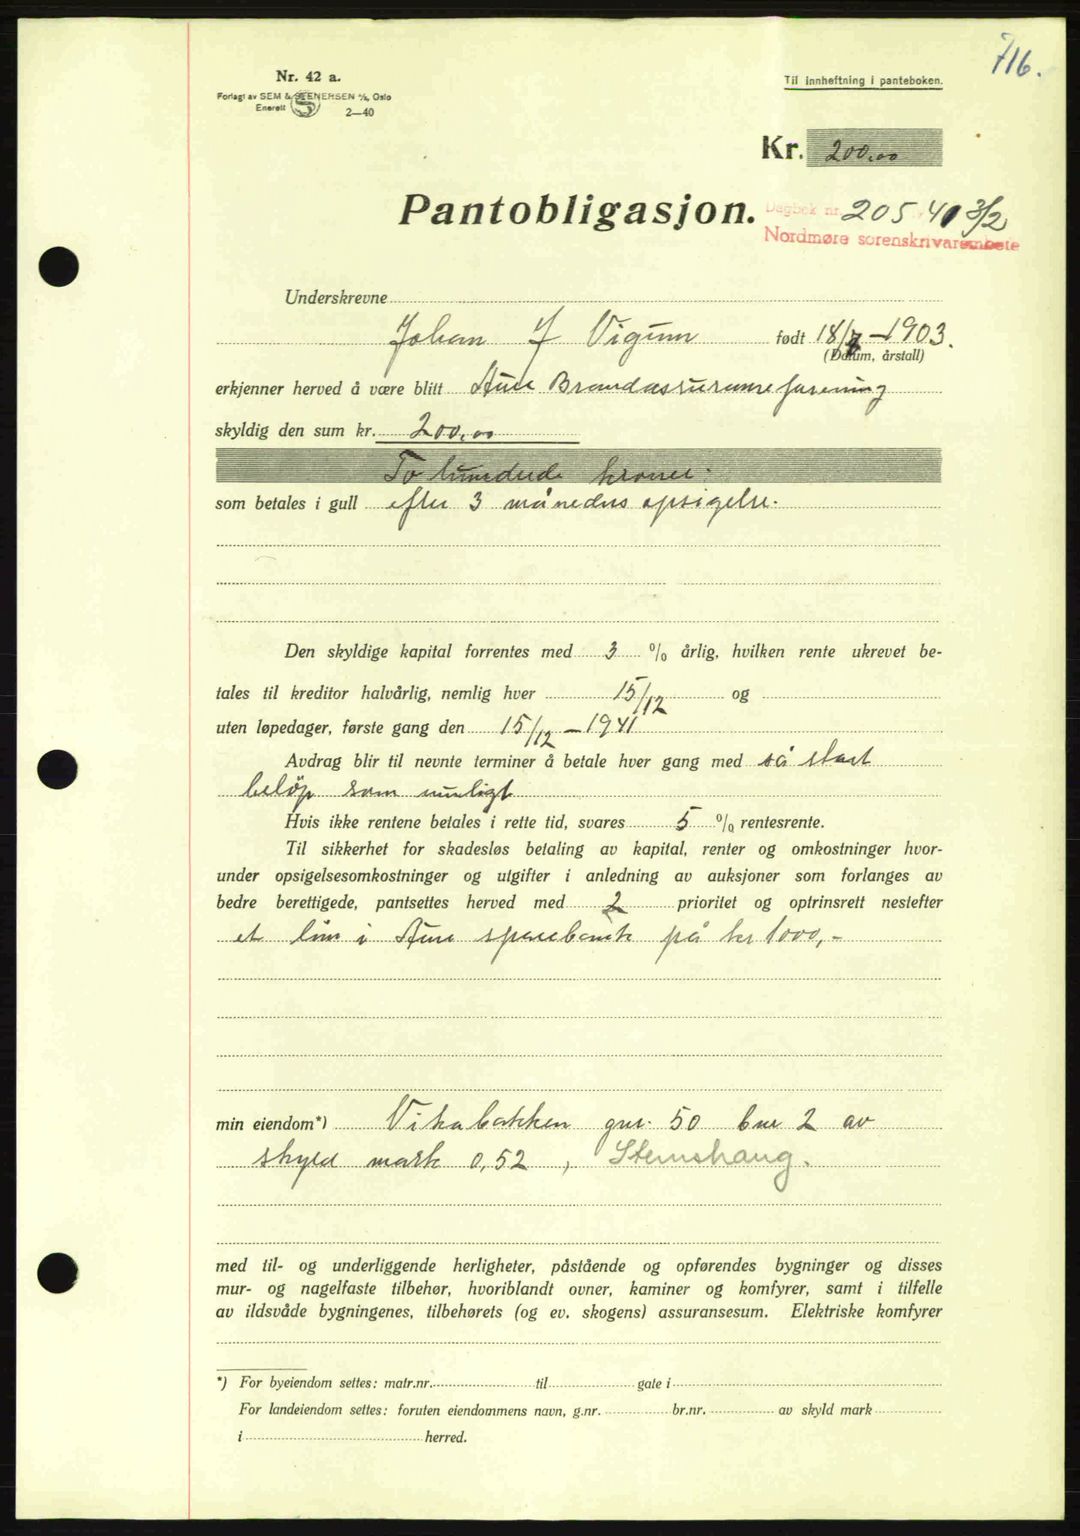 716.
Nr. 42 a.
Forlagt av SEM & STENERSEN A/S, Oslo
Enerett 2—40
Til innheftning i panteboken.
Kr. 200,00
Pantobligasjon.
Dagbok nr. 205 41 3/2
Nordmøre sorenskrivarembete
Underskrevne
Johan J Vigum født 18/7 – 1903.
(Datum, årstall)
erkjenner herved å være blitt Aure Brandassuranseforening
skyldig den sum kr. 200,00
To hundrede kroner.
som betales i gull efter 3 måneders opsigelse.
Den skyldige kapital forrentes med 3 % årlig, hvilken rente ukrevet be-
tales til kreditor halvårlig, nemlig hver 15/12 og
uten løpedager, første gang den 15/12 – 1941
Avdrag blir til nevnte terminer å betale hver gang med så stort
beløp som muligt
Hvis ikke rentene betales i rette tid, svares 5 % rentesrente.
Til sikkerhet for skadesløs betaling av kapital, renter og omkostninger hvor-
under opsigelsesomkostninger og utgifter i anledning av auksjoner som forlanges av
bedre berettigede, pantsettes herved med 2 prioritet og optrinsrett nestefter
et lån i Aure sparebank på kr 1000,-
min eiendom*) Vikabakken gnr. 50 bnr 2 av
skyld mark 0,52, Stemshaug.
med til- og underliggende herligheter, påstående og opførendes bygninger og disses
mur- og nagelfaste tilbehør, hvoriblandt ovner, kaminer og komfyrer, samt i tilfelle
av ildsvåde bygningenes, tilbehørets (og ev. skogens) assuransesum. Elektriske komfyrer
*) For byeiendom settes: matr.nr. til gate i
For landeiendom settes: foruten eiendommens navn, g.nr. br.nr. av skyld mark
i herred.